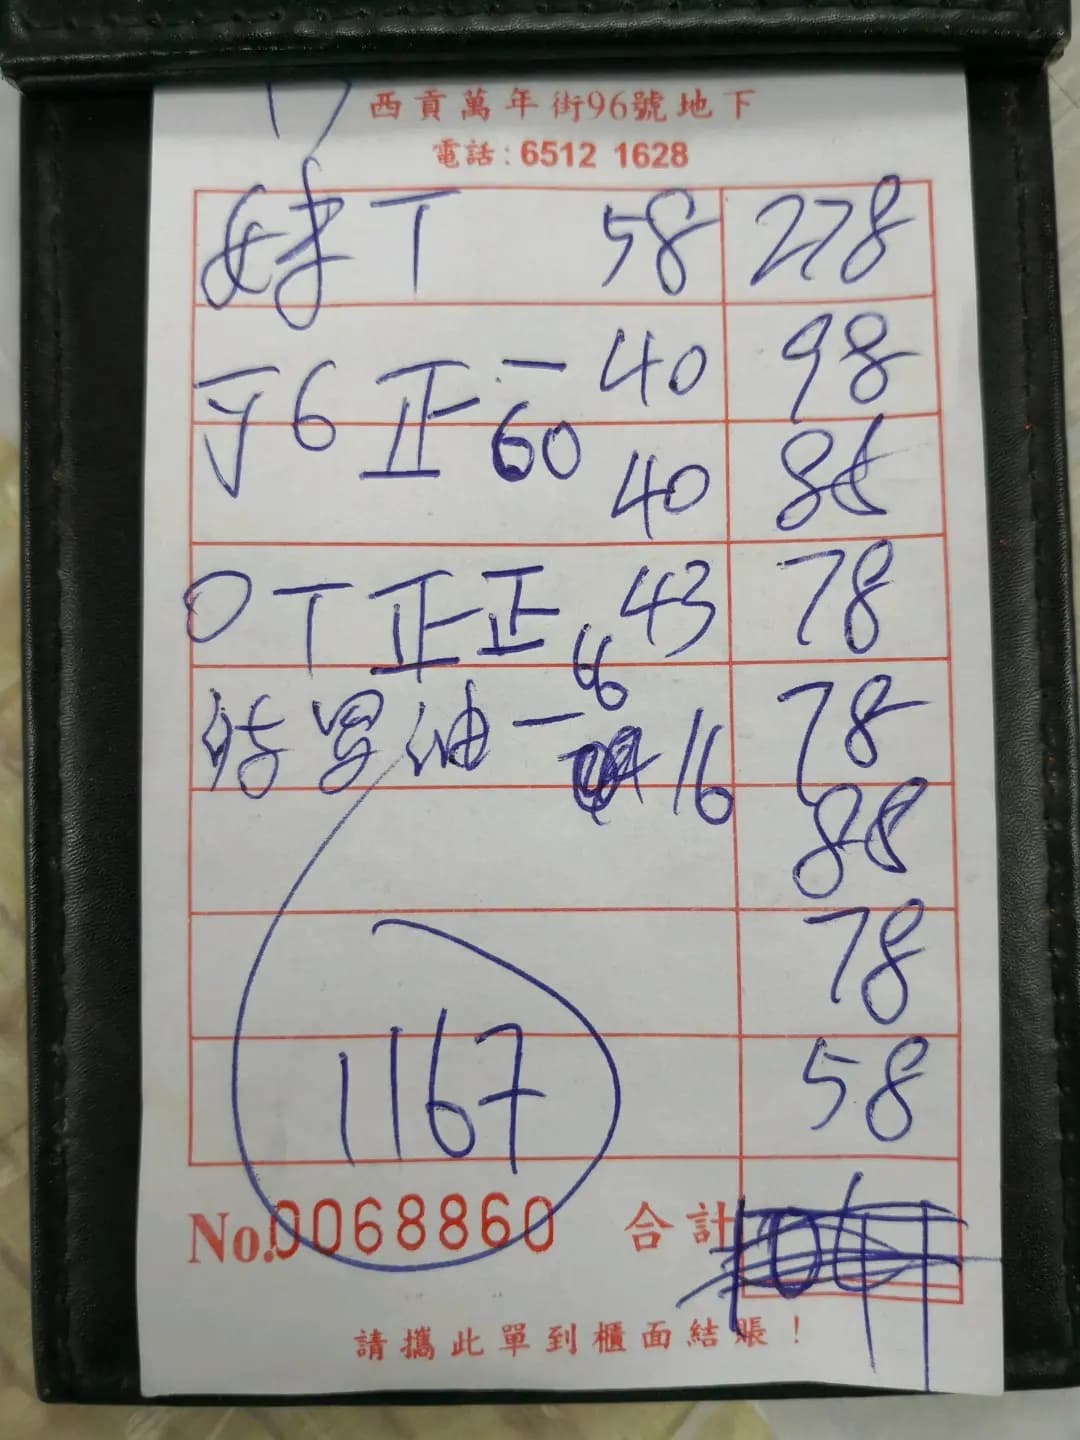 西貢萬年街96號地下
電話:6512 1628
丁 58 278
6 正一 40 98
60
40 88
O T 正正 43 78
66
油一 16 78
88
78
1167 58
No.0068860 合計
請攜此單到櫃面結賬！